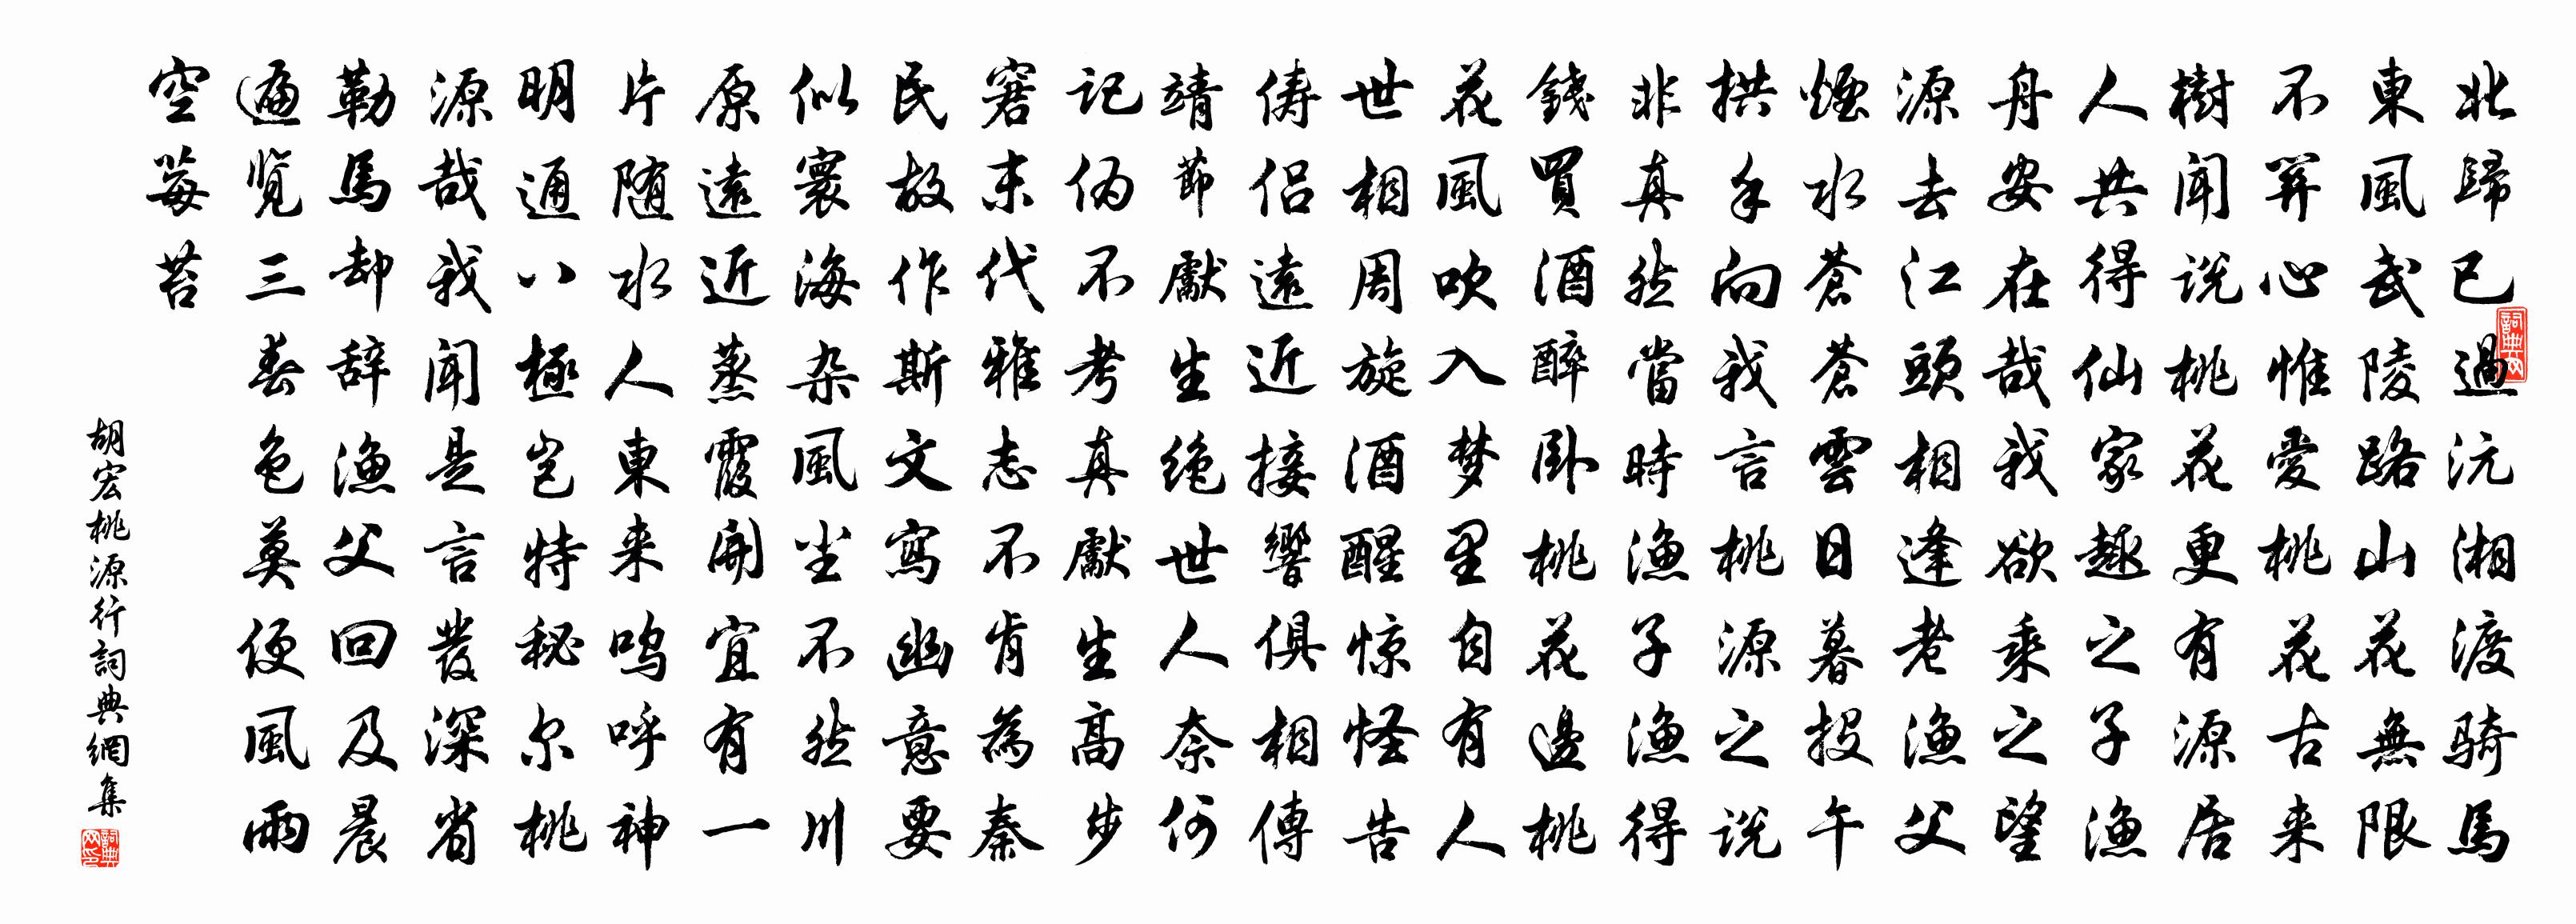 北歸已過沅湘渡騎馬
東風武陵路山花無限
不關心惟愛桃花古来
樹聞説桃花更有源居
人共得仙家趣之子漁
舟安在哉我欲乘之望
源去江頭相逢老漁父
煙水蒼蒼雲日暮投午
拱手向我言桃源之説
非真然當時漁子漁得
錢買酒醉卧桃花邊桃
花風吹入梦里自有人
世相周旋酒醒惊怪告
俦侣遠近接響俱相傳
靖節獻生絶世人奈何
記伪不考真獻生高步
窘末代雅志不肯為秦
民故作斯文寫幽意要
似寰海杂風尘不然川
原遠近蒸霞開宜有一
片随水人東来呜呼神
明通八極岂特秘尔桃
源哉我聞是言發深省
勒馬却辞漁父回及晨
遍覽三春色莫便風雨
空莓苔
胡宏桃源行詞典網集
詞典网
詞典网印